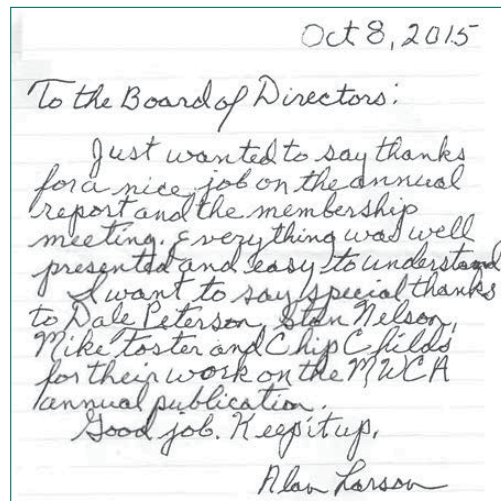 Oct 8, 2015
To the Board of Directors:
Just wanted to say thanks
for a nice job on the annual
report and the membership
meeting. Everything was well
presented and easy to understand
I want to say special thanks
to Dale Peterson, Stan Nelson,
Mike Foster and Chip Childs
for their work on the MWCA
annual publication.
Good job. Keep it up,
Alan Larson